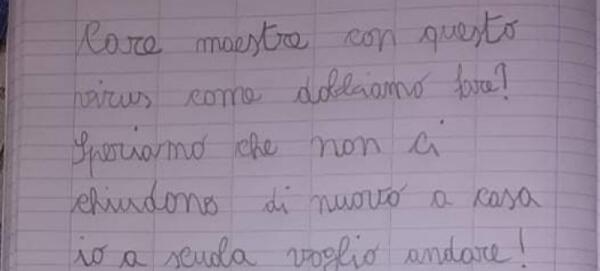 Care maestre con questo
virus come dobbiamo fare?
Speriamo che non ci
chiudono di nuovo a casa
io a scuola voglio andare!